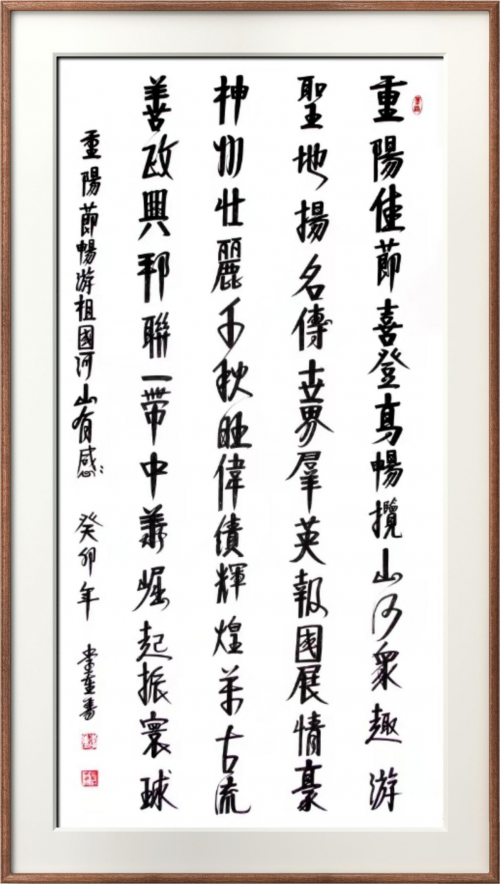 重陽佳節喜登高暢攬山河衆趣游
聖地揚名傳世界羣英報國展情豪
神州壯麗千秋旺偉績輝煌萬古流
善政興邦聯一帶中華崛起振寰球
重陽節暢游祖國河山有感 癸卯年